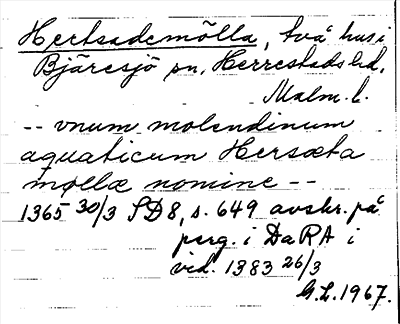 Hertsademölla, två hus i
Bjäresjö sn, Herrestads hd,
Malm. l.
-- vnum molendinum
aquaticum Hersæta
møllæ nomine --
1365 30/3 SD 8, s. 649 avskr. på
perg. i DaRA i
vid. 1383 26/3
G.L. 1967.